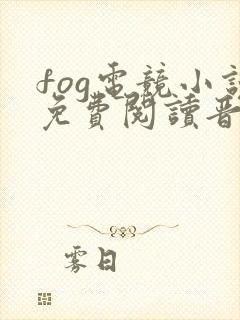 fog電競小說
免費閱讀晋
雾日